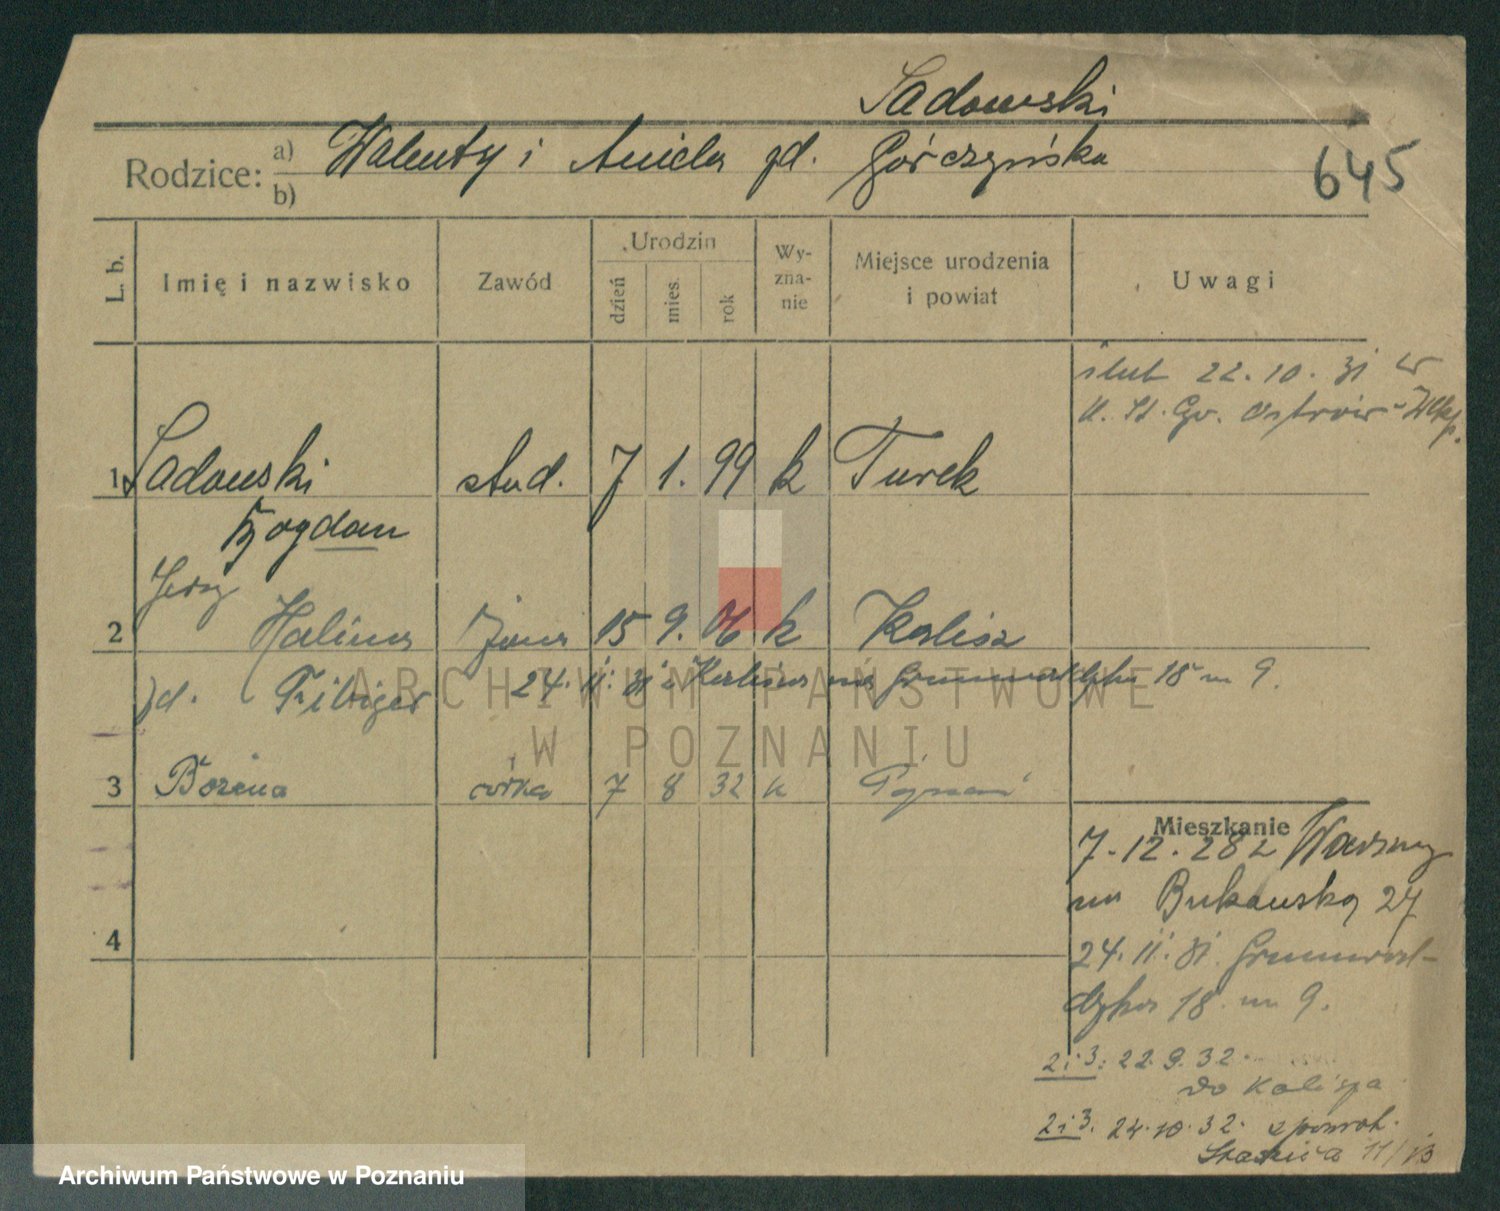 Sadowski
Rodzice: a) Walenty i Aniela zd. Górczyńska
b)
645
L. b.
Imię i nazwisko
Zawód
Urodzin
dzień
mies.
rok
Wy-
zna-
nie
Miejsce urodzenia
i powiat
Uwagi
ślub 22.10.31 w
U. St. Gv. Ostrów-Wlkp.
1 Sadowski stud. 7 1. 99 k Turek
Bogdan
Jerzy
2 Halina żona 15 9. 06 k Kalisz
zd. Fibiger 24.11.31 z Kalisza na Grunwaldzka 18 m 9.
3 Bożena córka 7 8 32 k Poznań
4
Mieszkanie
7.12.28 z Warszawy
na Bukowską 27
24.11.31. Grunwal-
dzka 18 m 9.
2 i 3: 22.9.32.
do Kalisza
2 i 3. 24.10.32. z powrot.
Staszica 11/13
ARCHIWUM PAŃSTWOWE
W POZNANIU
Archiwum Państwowe w Poznaniu